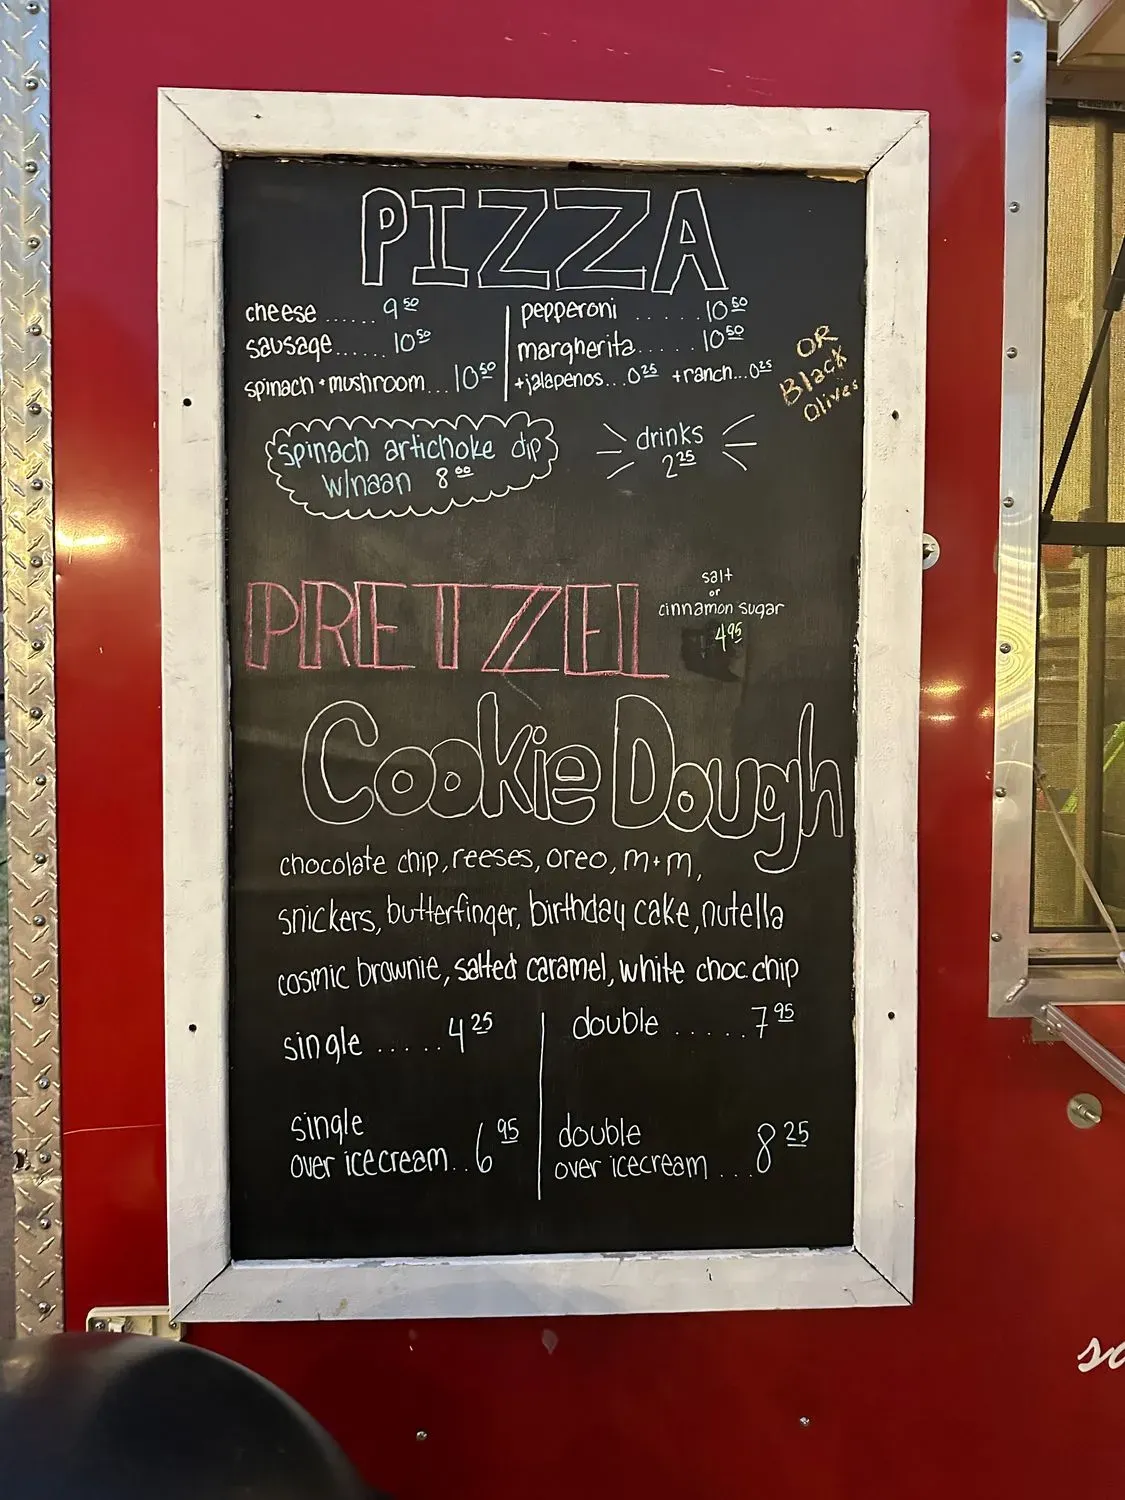 PIZZA
cheese ...... 9 50
sausage...... 10 50
spinach + mushroom... 10 50
pepperoni ...... 10 50
margherita...... 10 50
+jalapenos...0 25 +ranch...0 25
OR
Black
Olives
spinach artichoke dip
w/naan 8 00
drinks
2 25
PRETZEL
salt
or
cinnamon sugar
4 95
Cookie Dough
chocolate chip, reeses, oreo, m+m,
snickers, butterfinger, birthday cake, nutella
cosmic brownie, salted caramel, white choc chip
single ..... 4 25
double ..... 7 95
single
over icecream.. 6 95
double
over icecream ... 8 25